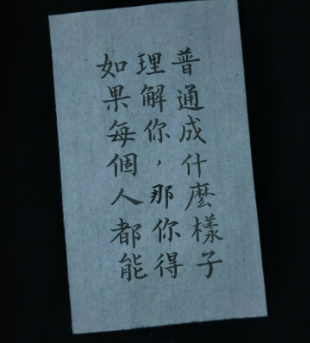 如果每個人都能
理解你，那你得
普通成什麼樣子